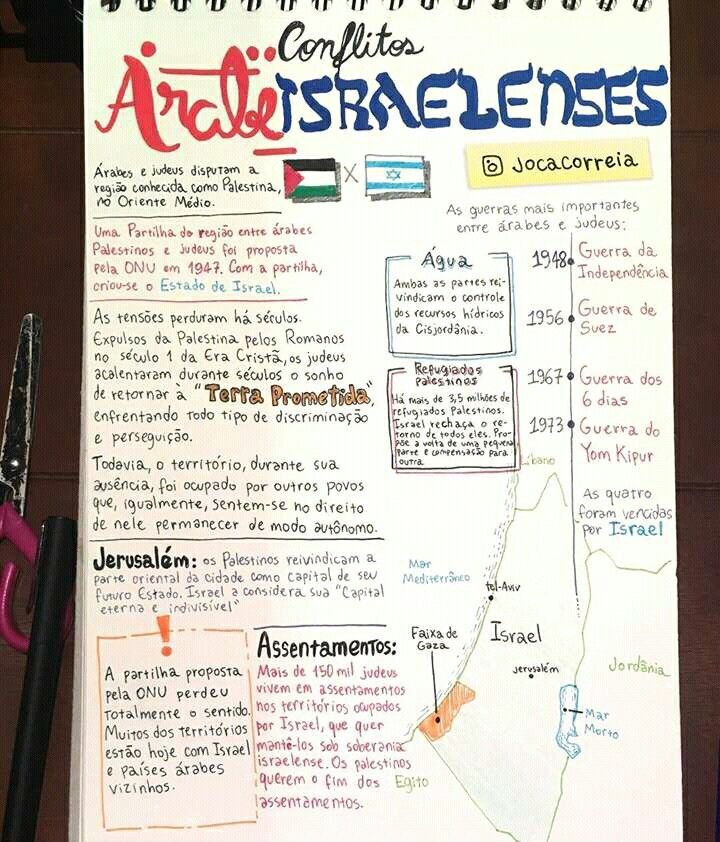 Conflitos
Árabe
ISRAELENSES
jocacorreia
Árabes e judeus disputam a
região conhecida como Palestina,
no Oriente Médio.
X
Uma Partilha da região entre árabes
Palestinos e judeus foi proposta
pela ONU em 1947. Com a partilha,
criou-se o Estado de Israel.
As tensões perduram há séculos.
Expulsos da Palestina pelos Romanos
no século 1 da Era Cristã, os judeus
acalentaram durante séculos o sonho
de retornar à "Terra Prometida",
enfrentando todo tipo de discriminação
e perseguição.
Todavia, o território, durante sua
ausência, foi ocupado por outros povos
que, igualmente, sentem-se no direito
de nele permanecer de modo autônomo.
Jerusalém: os Palestinos reivindicam a
parte oriental da cidade como capital de seu
futuro Estado. Israel a considera sua "Capital
eterna e indivisível"
!
A partilha proposta
pela ONU perdeu
totalmente o sentido.
Muitos dos territórios
estão hoje com Israel
e países árabes
vizinhos.
Assentamentos:
Mais de 150 mil judeus
vivem em assentamentos
nos territórios ocupados
por Israel, que quer
mantê-los sob soberania
israelense. Os palestinos
querem o fim dos
assentamentos.
Água
Ambas as partes rei-
vindicam o controle
dos recursos hídricos
da Cisjordânia.
Refugiados
Palestinos
Há mais de 3,5 milhões de
refugiados Palestinos.
Israel rechaça o re-
torno de todos eles. Pro-
põe a volta de uma pequena
parte e compensação para
outra
As guerras mais importantes
entre árabes e judeus:
1948 Guerra da
Independência
1956 Guerra de
Suez
1967 Guerra dos
6 dias
1973 Guerra do
Yom Kipur
As quatro
foram vencidas
por Israel
Líbano
Mar
Mediterrâneo
tel-Aviv
Faixa de
Gaza
Israel
Jerusalém
Jordânia
Mar
Morto
Egito